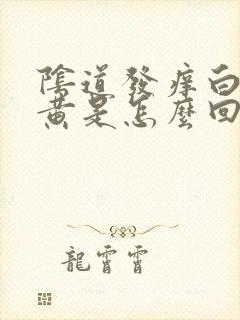 陰道發痒白
黃是怎麼回
龍霄霄